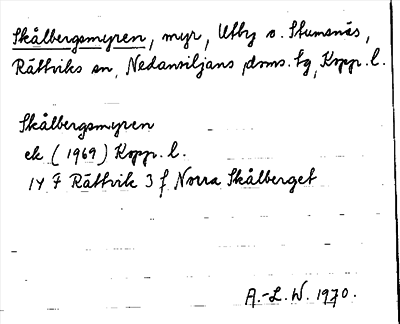 Skålbergsmyren, myr, Utby o. Stumsnäs,
Rättviks sn, Nedansiljans doms. tg, Kopp. l.
Skålbergsmyren
ek (1969) Kopp. l.
14 F Rättvik 3 f Norra Skålberget
A.-L. W. 1970.